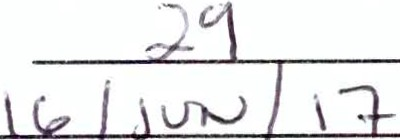 29
16/JUN/17